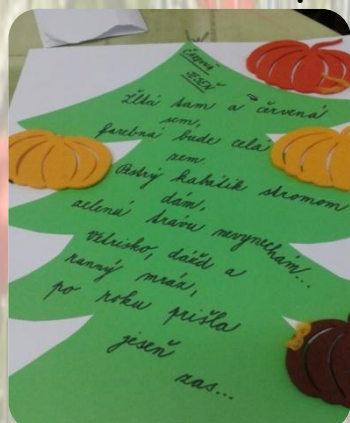 Čarovná
JESEŇ
Žltá sam a červená
som,
farebná bude celá
zem.
Pestrý kabátik stromom
dám,
zelenú trávu nevynechám...
Vetrisko, dážď a
ranný mráz,
po roku prišla
jeseň
zas...